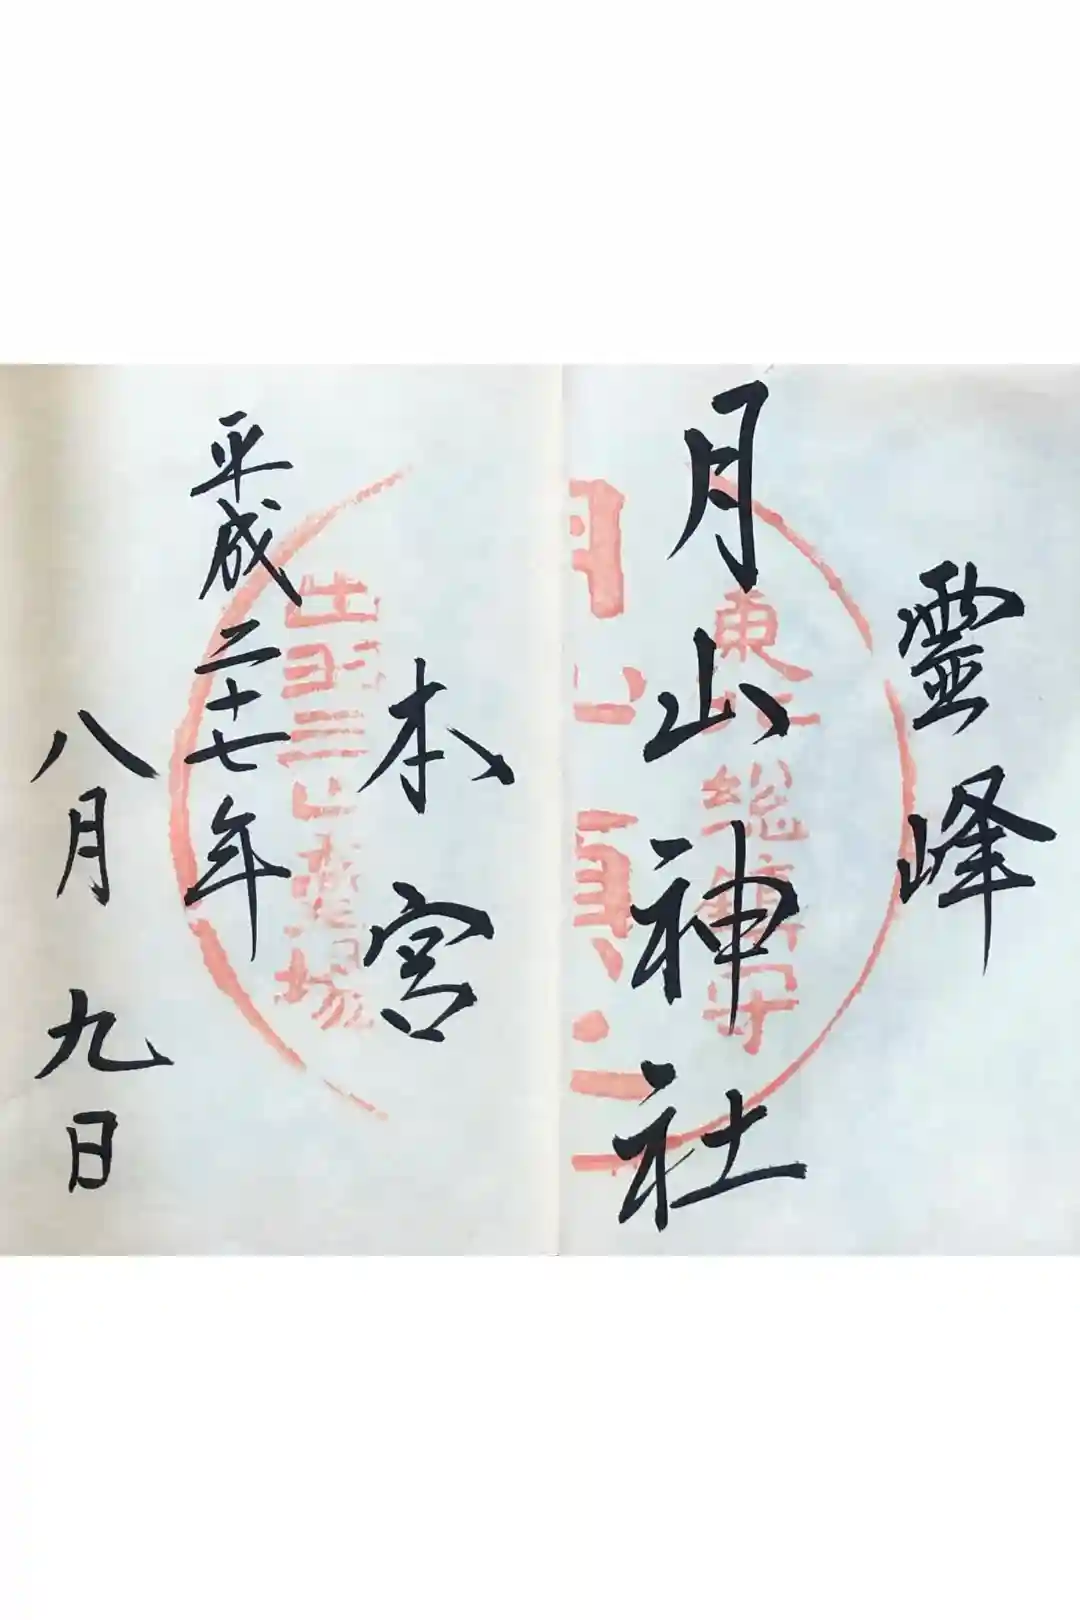 霊峰
月山神社
本宮
平成二十七年
八月九日
東北総鎮守
月山頂上
出羽三山霊場